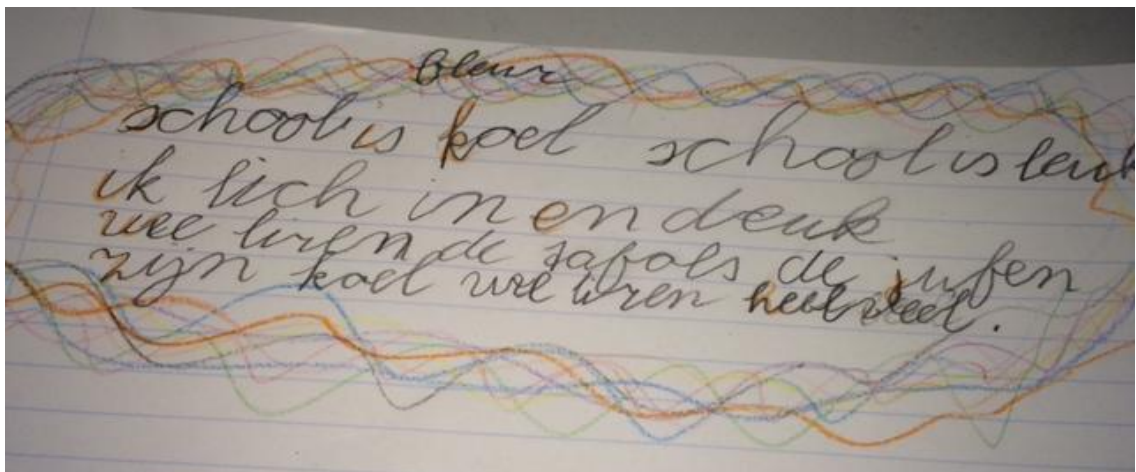 Bleur
school is koel school is leuk
ik lich in en deuk
wee liren de tafols de jufen
zijn koel wee liren heel veel.